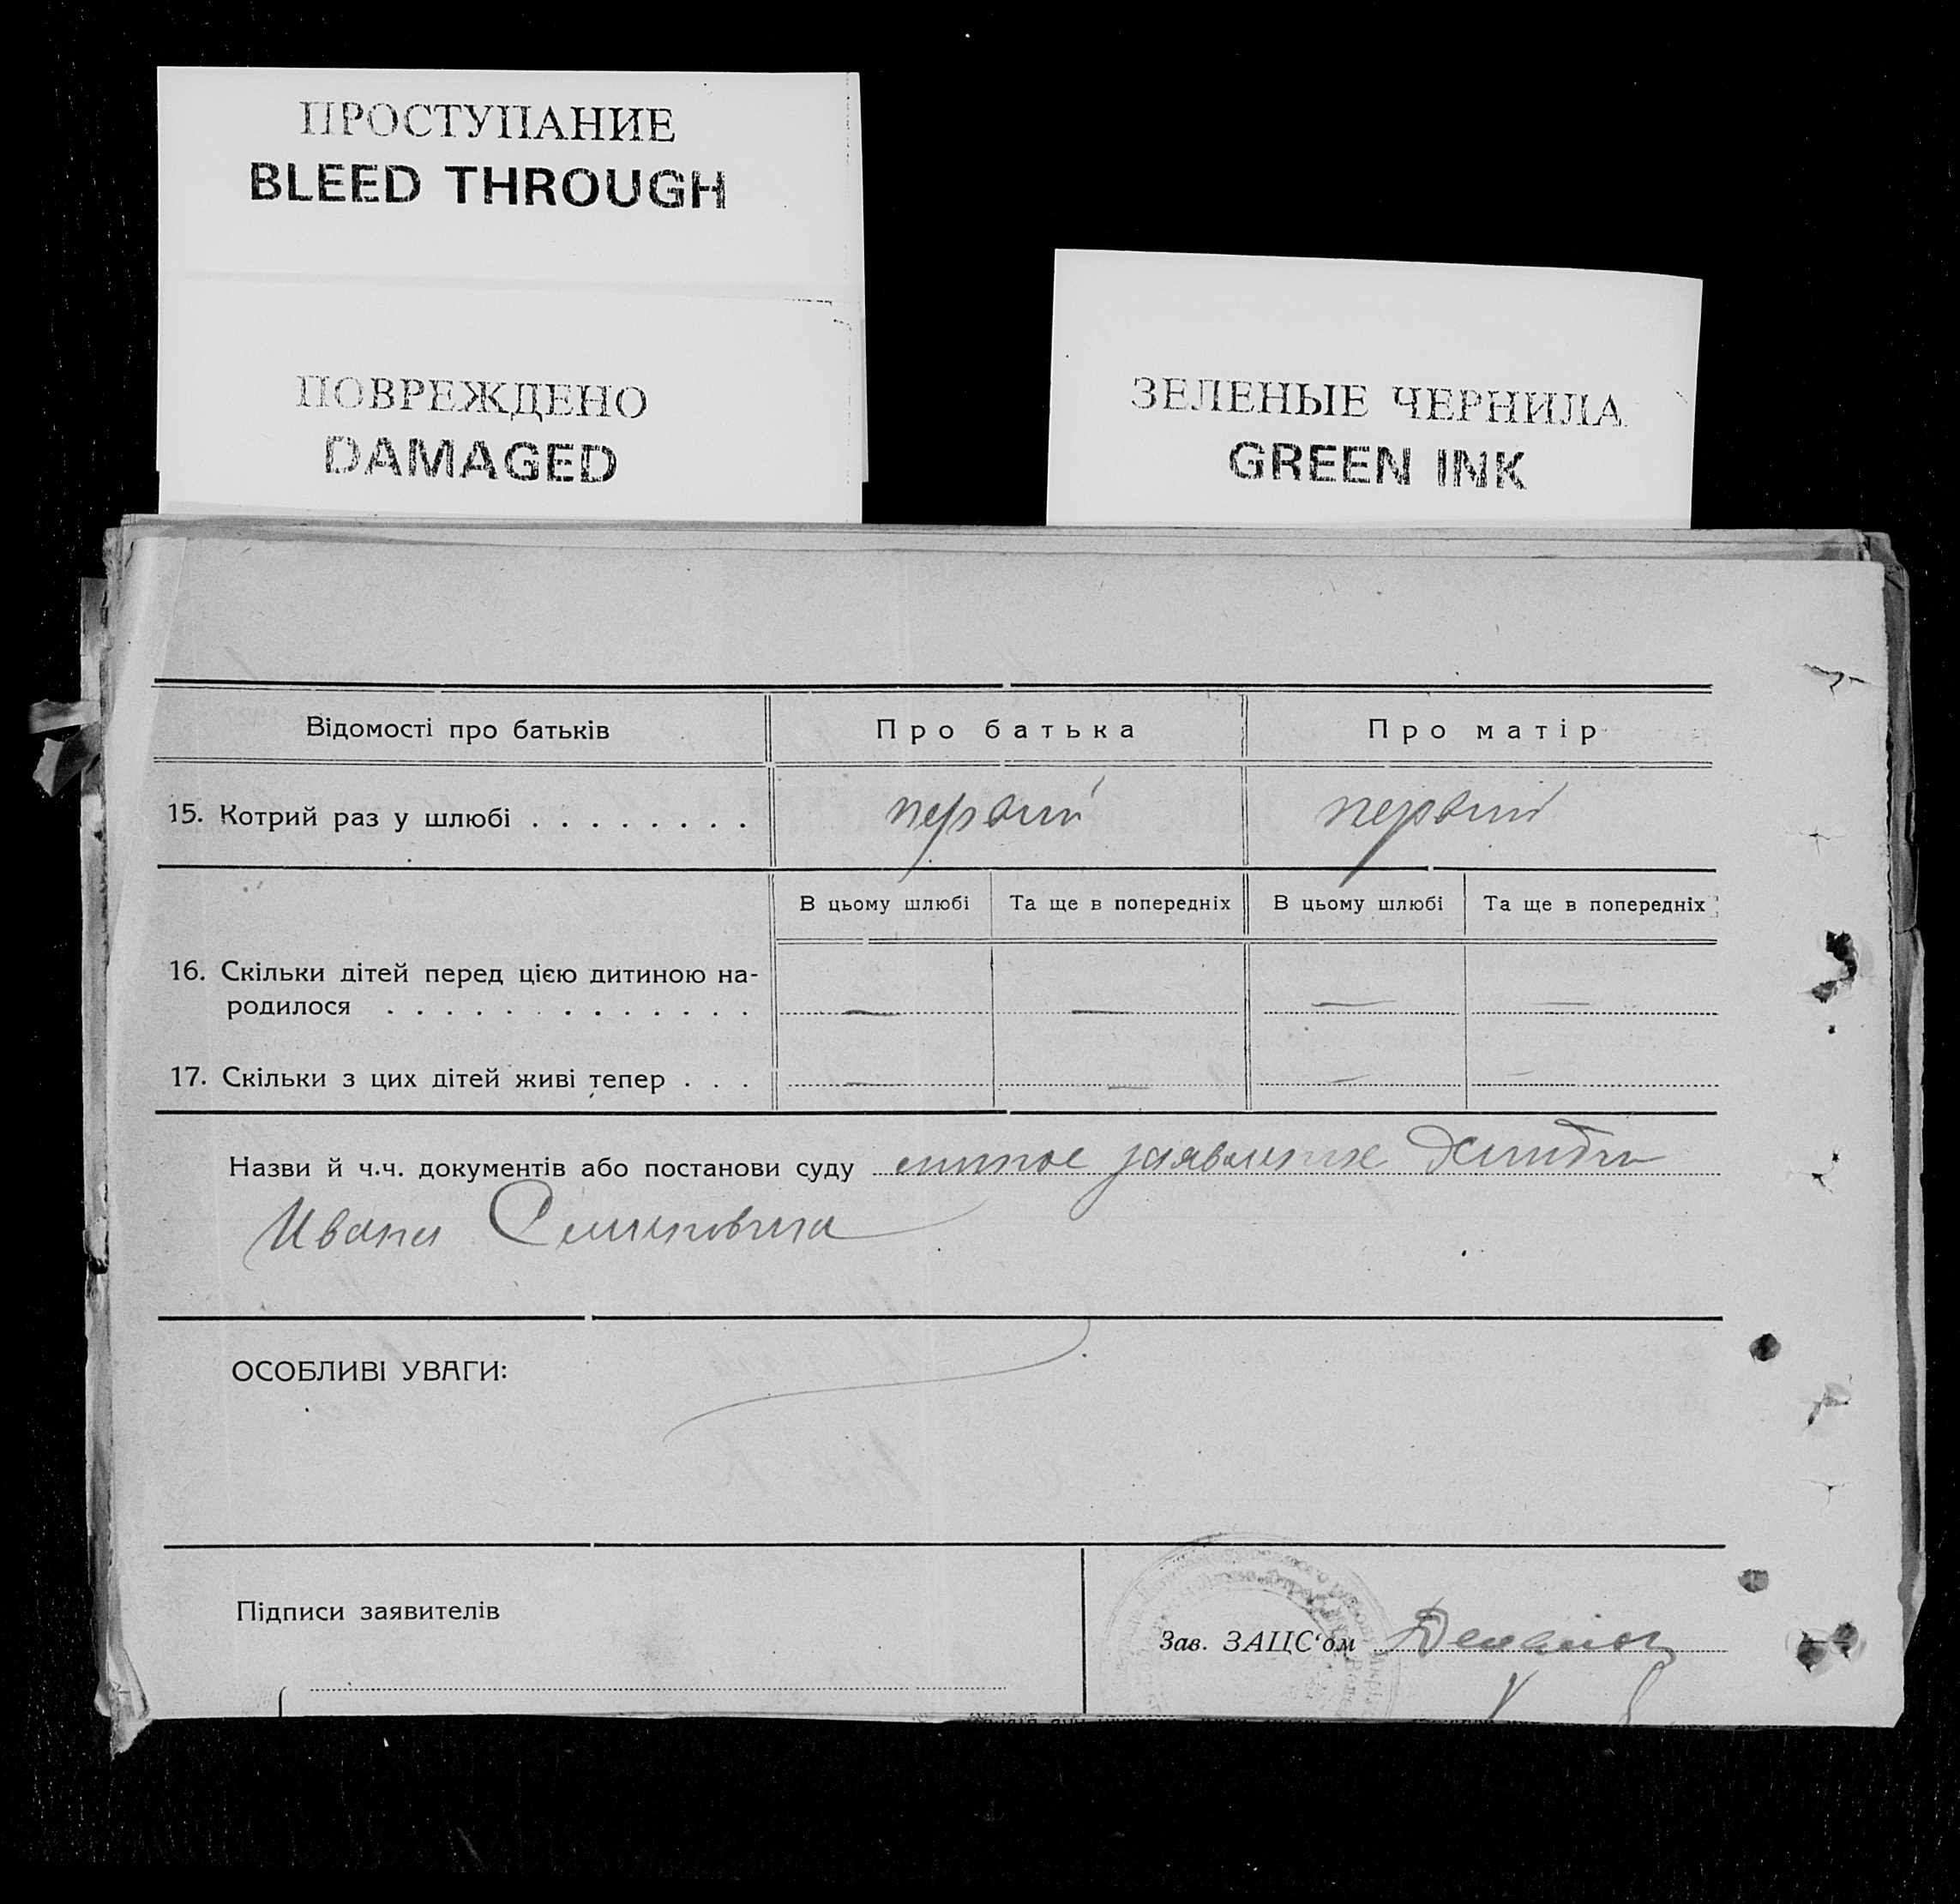 ПРОСТУПАНИЕ
BLEED THROUGH
ПОВРЕЖДЕНО
DAMAGED
ЗЕЛЕНЫЕ ЧЕРНИЛА
GREEN INK
Відомості про батьків Про батька Про матір
15. Котрий раз у шлюбі . . . . . . . . первий первий
В цьому шлюбі Та ще в попередніх В цьому шлюбі Та ще в попередніх
16. Скільки дітей перед цією дитиною на-
родилося . . . . . . . . . . . . . — — — —
17. Скільки з цих дітей живі тепер . . . — — — —
Назви й ч.ч. документів або постанови суду личное заявление
Ивана Семеновича
ОСОБЛИВІ УВАГИ:
Підписи заявителів
Зав. ЗАЦС‘ом